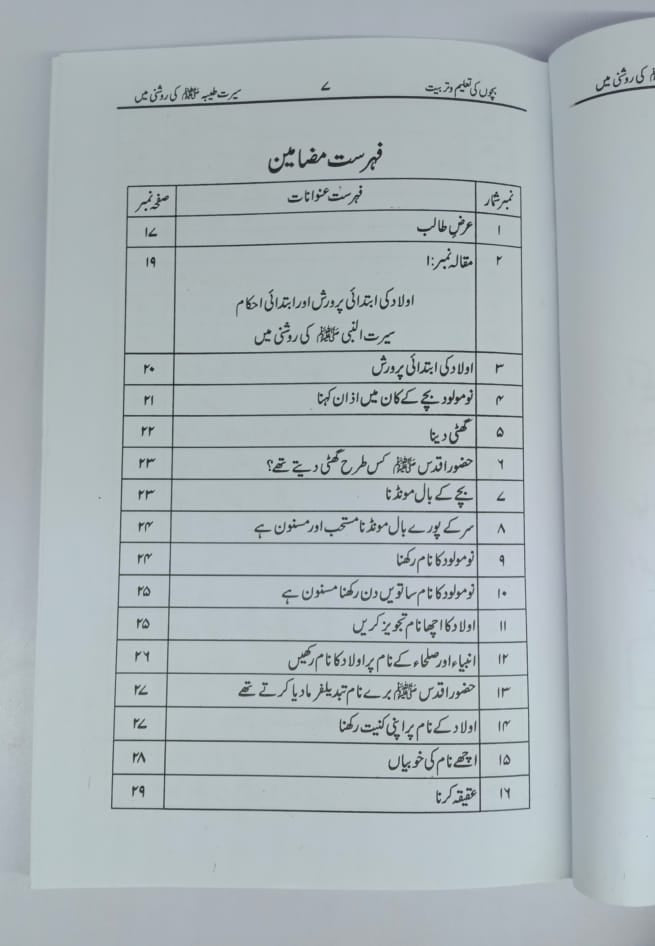 بچوں کی تعلیم و تربیت ۷ سیرت طیبہ ﷺ کی روشنی میں
فہرست مضامین
نمبر شمار فہرست عنوانات صفحہ نمبر
۱ عرضِ طالب ۱۷
۲ مقالہ نمبر:۱ ۱۹
اولاد کی ابتدائی پرورش اور ابتدائی احکام
سیرت النبی ﷺ کی روشنی میں
۳ اولاد کی ابتدائی پرورش ۲۰
۴ نومولود بچے کے کان میں اذان کہنا ۲۱
۵ گھٹی دینا ۲۲
۶ حضور اقدس ﷺ کس طرح گھٹی دیتے تھے؟ ۲۳
۷ بچے کے بال مونڈنا ۲۳
۸ سر کے پورے بال مونڈنا مستحب اور مسنون ہے ۲۴
۹ نومولود کا نام رکھنا ۲۴
۱۰ نومولود کا نام ساتویں دن رکھنا مسنون ہے ۲۵
۱۱ اولاد کا اچھا نام تجویز کریں ۲۵
۱۲ انبیاء اور صلحاء کے نام پر اولاد کا نام رکھیں ۲۶
۱۳ حضور اقدس ﷺ برے نام تبدیلفرمادیا کرتے تھے ۲۷
۱۴ اولاد کے نام پر اپنی کنیت رکھنا ۲۷
۱۵ اچھے نام کی خوبیاں ۲۸
۱۶ عقیقہ کرنا ۲۹
ﷺ کی روشنی میں